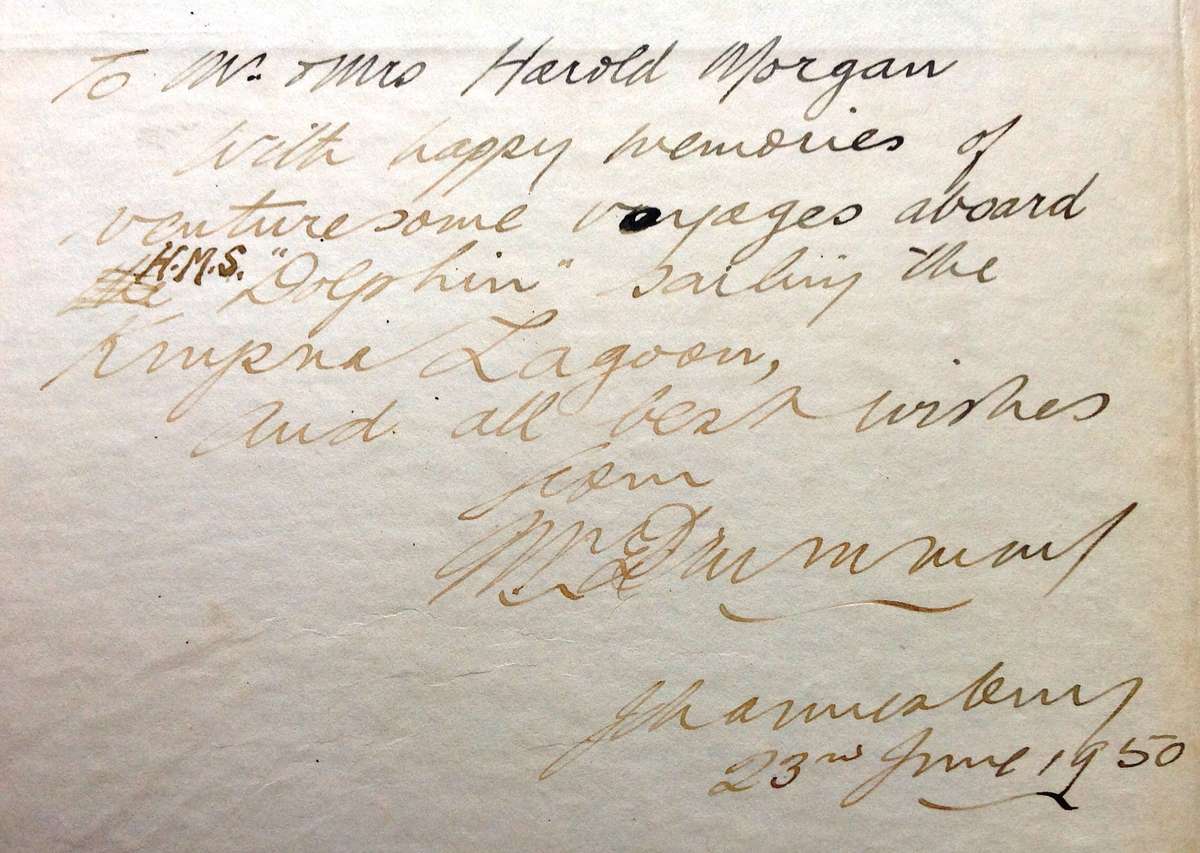 To Mr. & Mrs Harold Morgan
With happy memories of
venturesome voyages aboard
the H.M.S. "Dolphin" sailing the
Knysna Lagoon,
And all best wishes
from
Drummond
Johannesburg
23rd June, 1950